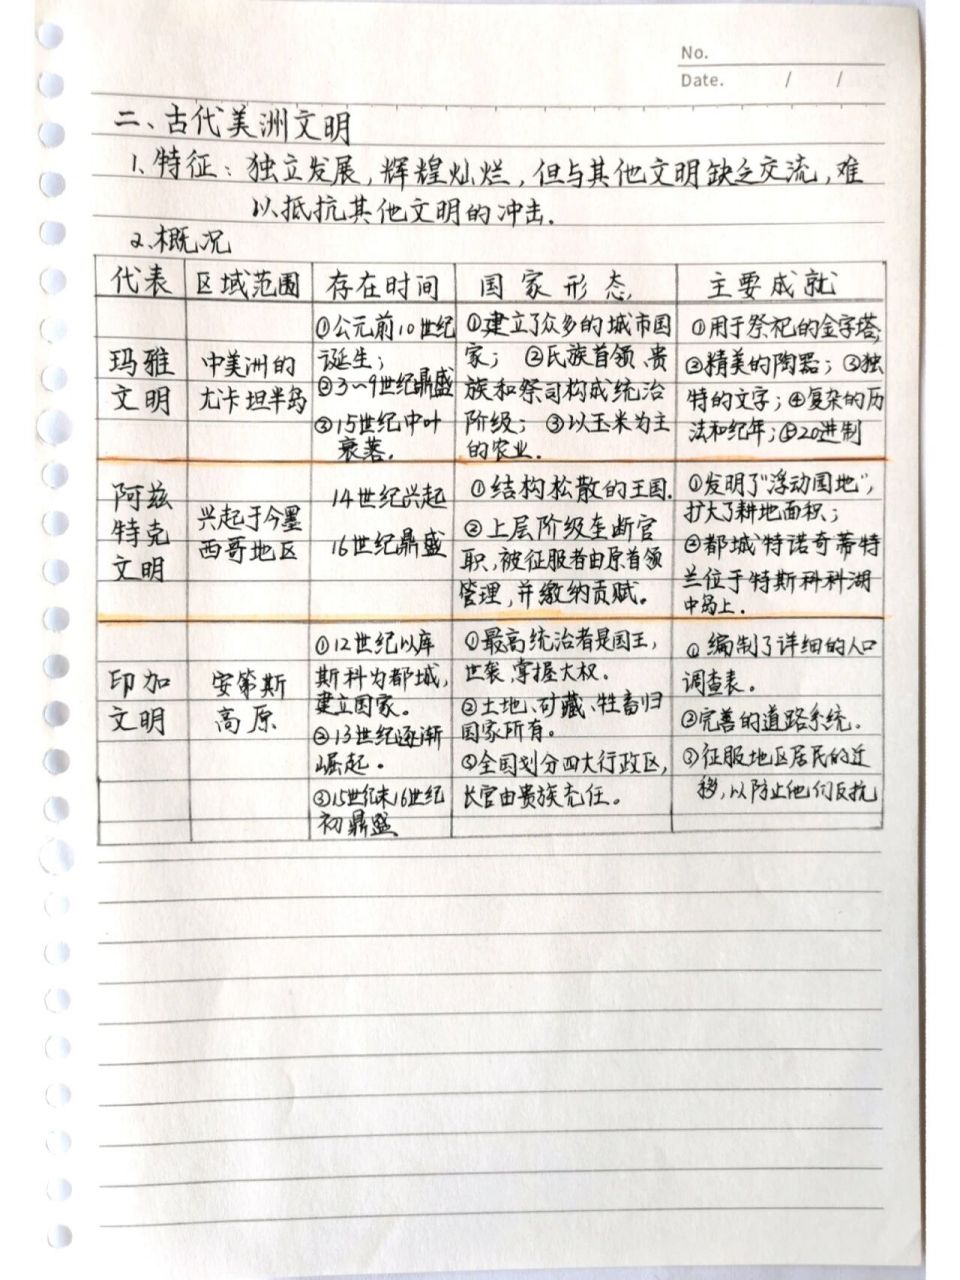 No.
Date. / /
二、古代美洲文明
1.特征：独立发展,辉煌灿烂,但与其他文明缺乏交流,难
以抵抗其他文明的冲击.
2.概况
代表
区域范围
存在时间
国家形态
主要成就
玛雅
文明
中美洲的
尤卡坦半岛
①公元前10世纪
诞生；
②3~9世纪鼎盛
③15世纪中叶
衰落.
①建立了众多的城市国
家； ②氏族首领、贵
族和祭司构成统治
阶级； ③以玉米为主
的农业.
①用于祭祀的金字塔;
②精美的陶器；③独
特的文字；④复杂的历
法和纪年；⑤20进制
阿兹
特克
文明
兴起于今墨
西哥地区
14世纪兴起
16世纪鼎盛
①结构松散的王国.
②上层阶级垄断官
职,被征服者由原首领
管理,并缴纳贡赋。
①发明了"浮动园地",
扩大了耕地面积；
②都城"特诺奇蒂特
兰位于特斯科科湖
中岛上.
印加
文明
安第斯
高原
①12世纪以库
斯科为都城,
建立国家。
②13世纪逐渐
崛起。
③15世纪末16世纪
初鼎盛
①最高统治者是国王,
世袭,掌握大权.
②土地、矿藏、牲畜归
国家所有。
③全国划分四大行政区,
长官由贵族充任。
①编制了详细的人口
调查表。
②完善的道路系统.
③征服地区居民的迁
移,以防止他们反抗